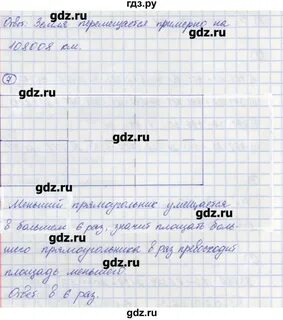 гдз.ру
Ответ: Земля перемещается примерно на
108008 км.
7
Меньший прямоугольник умещается
в большем 6 раз, значит площадь боль-
шего прямоугольника в раз превосходит
площадь меньшего.
Ответ: в 6 раз.